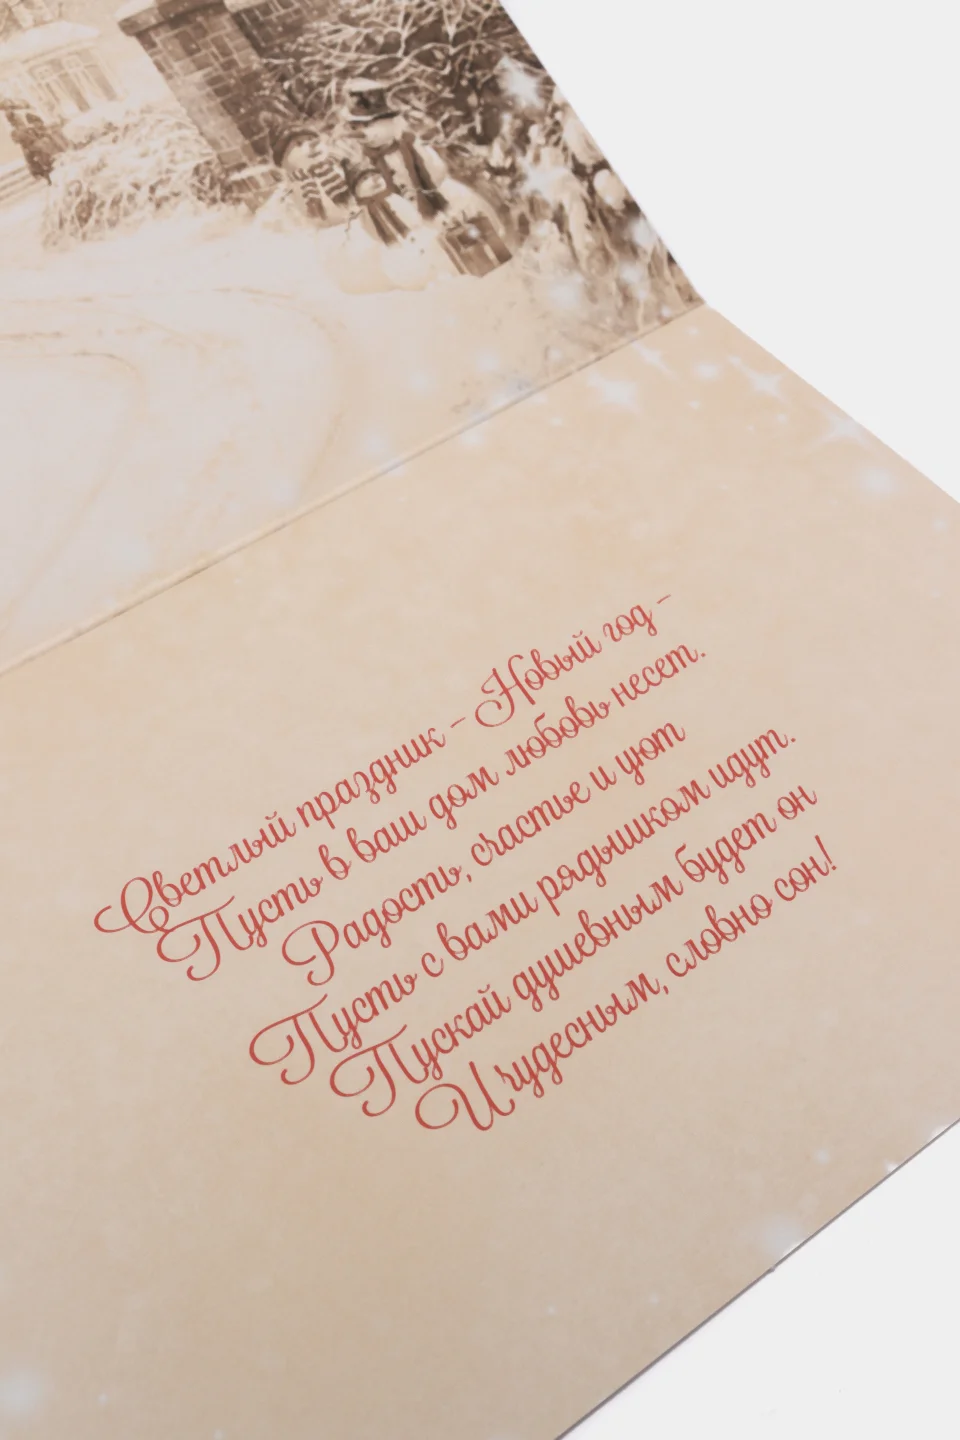 Светлый праздник - Новый год -
Пусть в ваш дом любовь несет.
Радость, счастье и уют
Пусть с вами рядышком идут.
Пускай душевным будет он
И чудесным, словно сон!